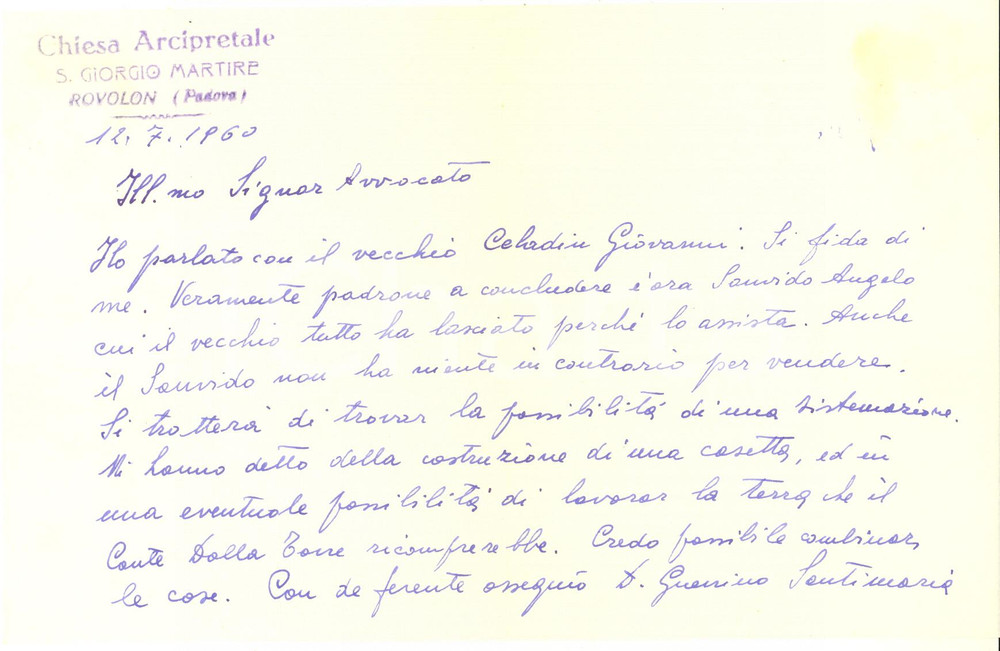 Chiesa Arcipretale
S. GIORGIO MARTIRE
ROVOLON (Padova)
12.7.1960
Ill.mo Signor Avvocato
Ho parlato con il vecchio Celadin Giovanni. Si fida di
me. Veramente padrone a concludere è ora Sanvido Angelo
cui il vecchio tutto ha lasciato perché lo assista. Anche
il Sanvido non ha niente in contrario per vendere.
Si tratterà di trovar la possibilità di una sistemazione.
Mi hanno detto della costruzione di una casetta, ed in
una eventuale possibilità di lavorar la terra che il
Conte Dalla Torre ricomprerebbe. Credo possibile combinar
le cose. Con deferente ossequio D. Guerrino Santimaria